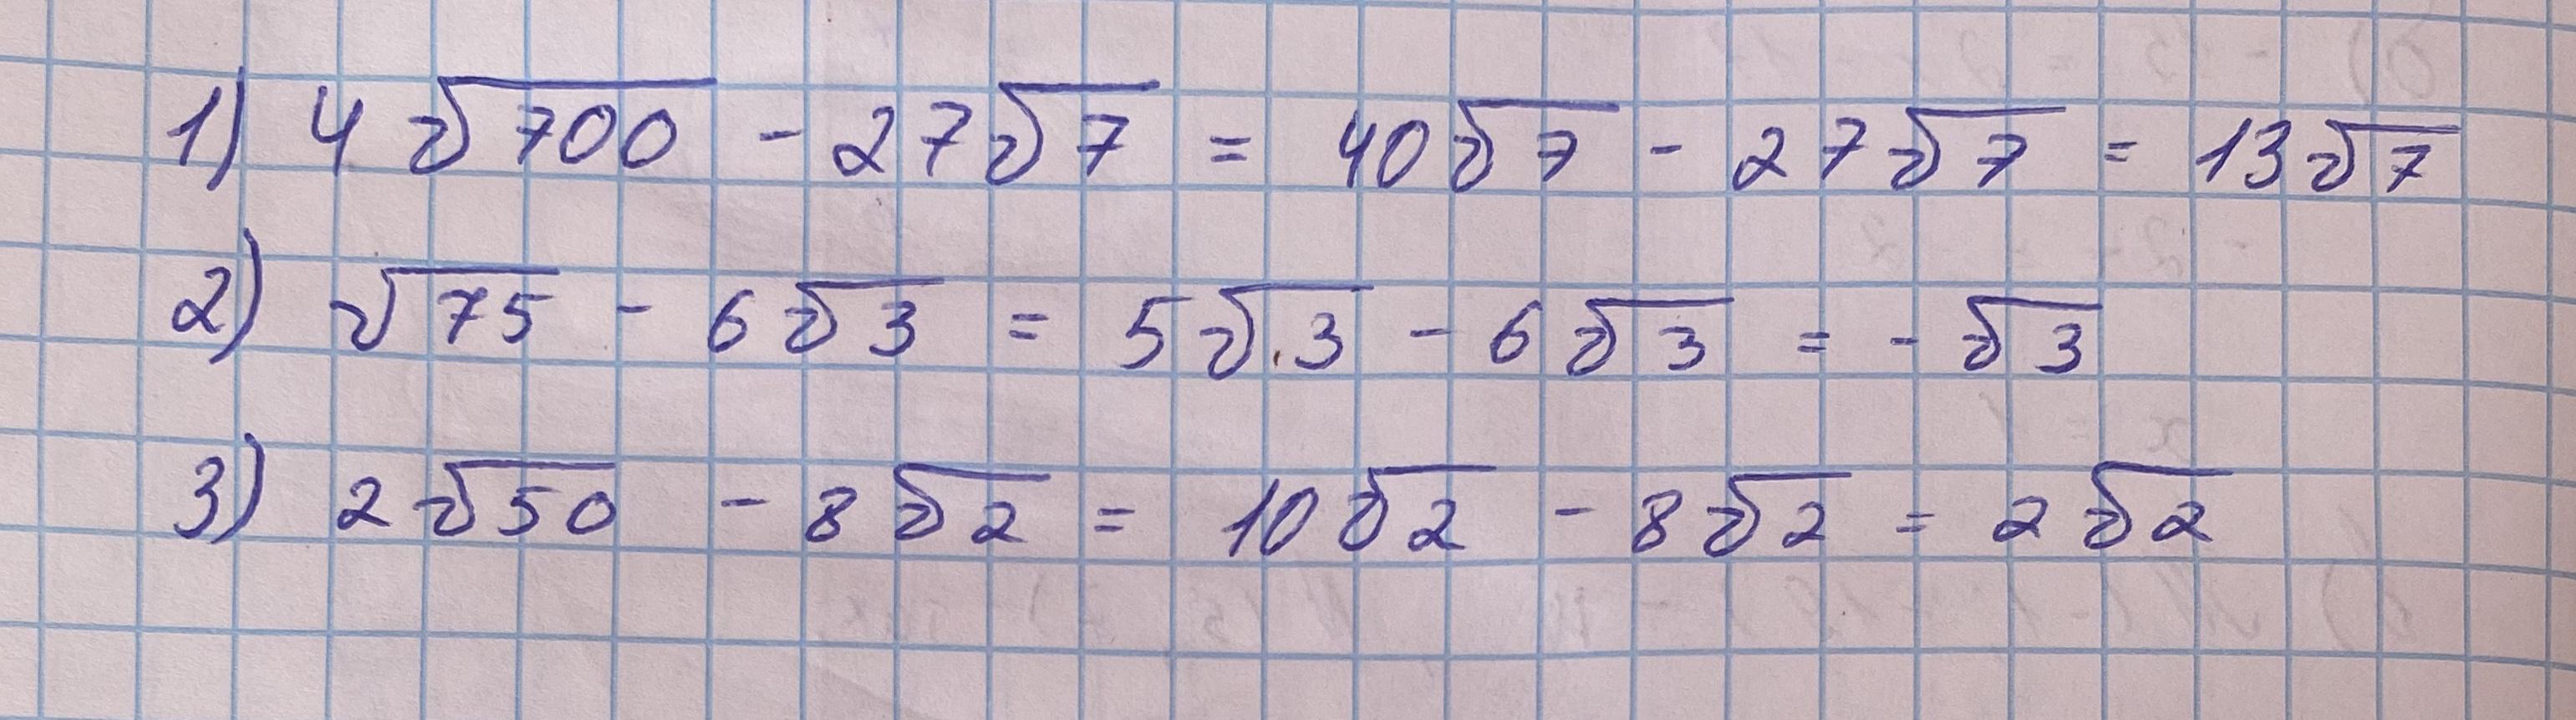 1) 4√700 - 27√7 = 40√7 - 27√7 = 13√7
2) √75 - 6√3 = 5√3 - 6√3 = -√3
3) 2√50 - 8√2 = 10√2 - 8√2 = 2√2